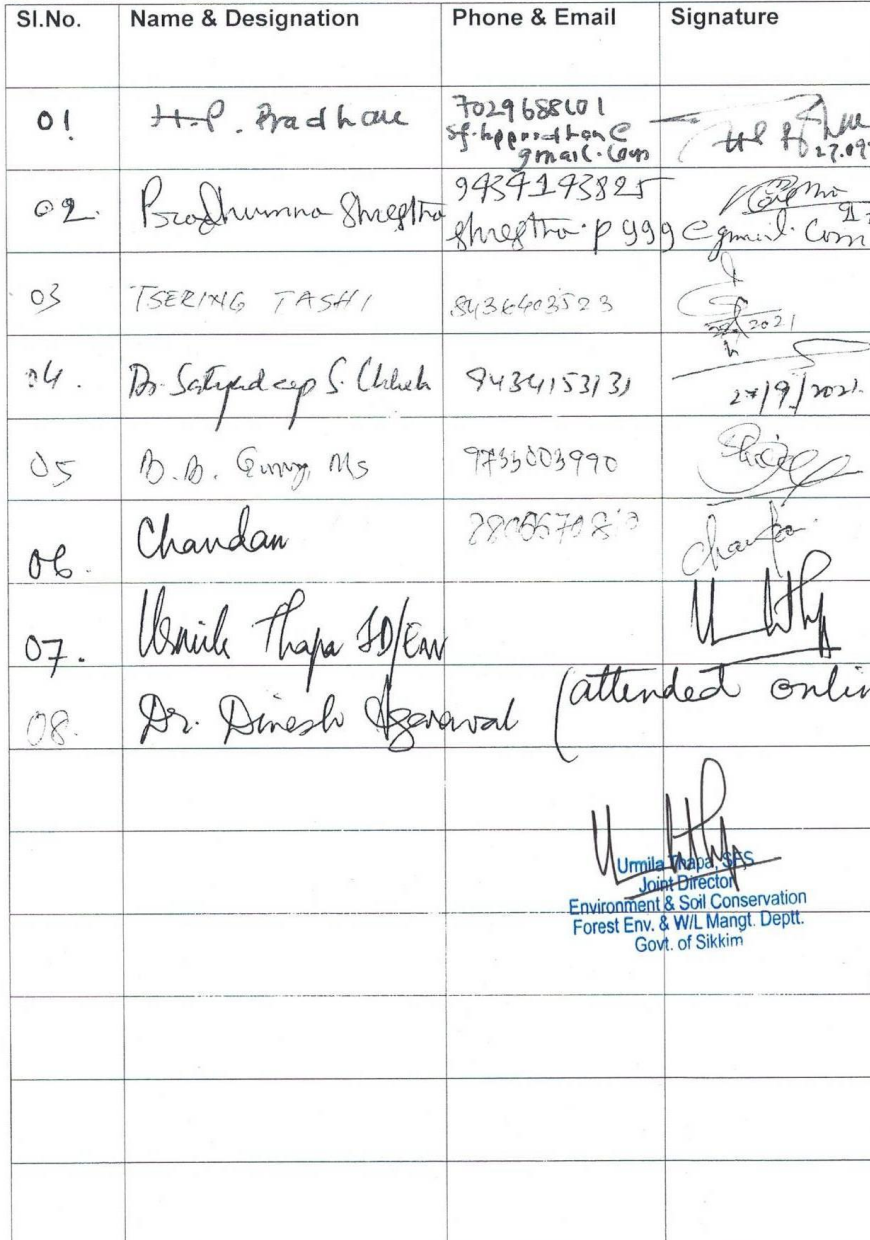 Sl.No. Name & Designation Phone & Email Signature
01 H.P. Pradhan 7029688601
gmail.com 27.09
02. Pradhumna Shrestha 9434143825
shrestha.p999@gmail.com
03 TSERING TASHI 8436403523
2021
04. Dr. Satyadeep S. Chhetri 9434153131 27/9/2021
05 B.B. Gurung, Ms 9733003990
06. Chandan
07. Urmila Thapa JD/Env
08. Dr. Dinesh Agarwal (attended onlin
Urmila Thapa, SFS
Joint Director
Environment & Soil Conservation
Forest Env. & W/L Mangt. Deptt.
Govt. of Sikkim